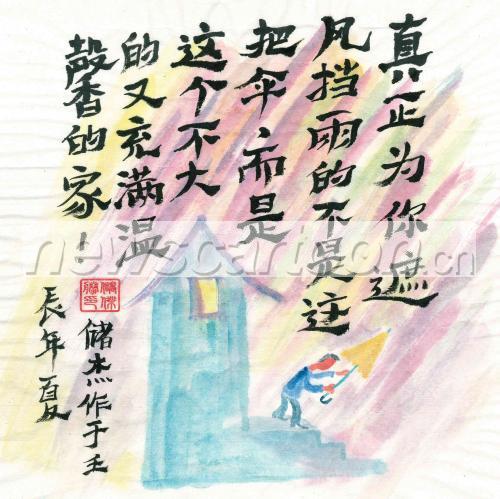 真正为你遮
风挡雨的不是这
把伞、而是
这个不大
的又充满温
馨的家！
储杰作于壬
辰年夏
newscartoon.cn